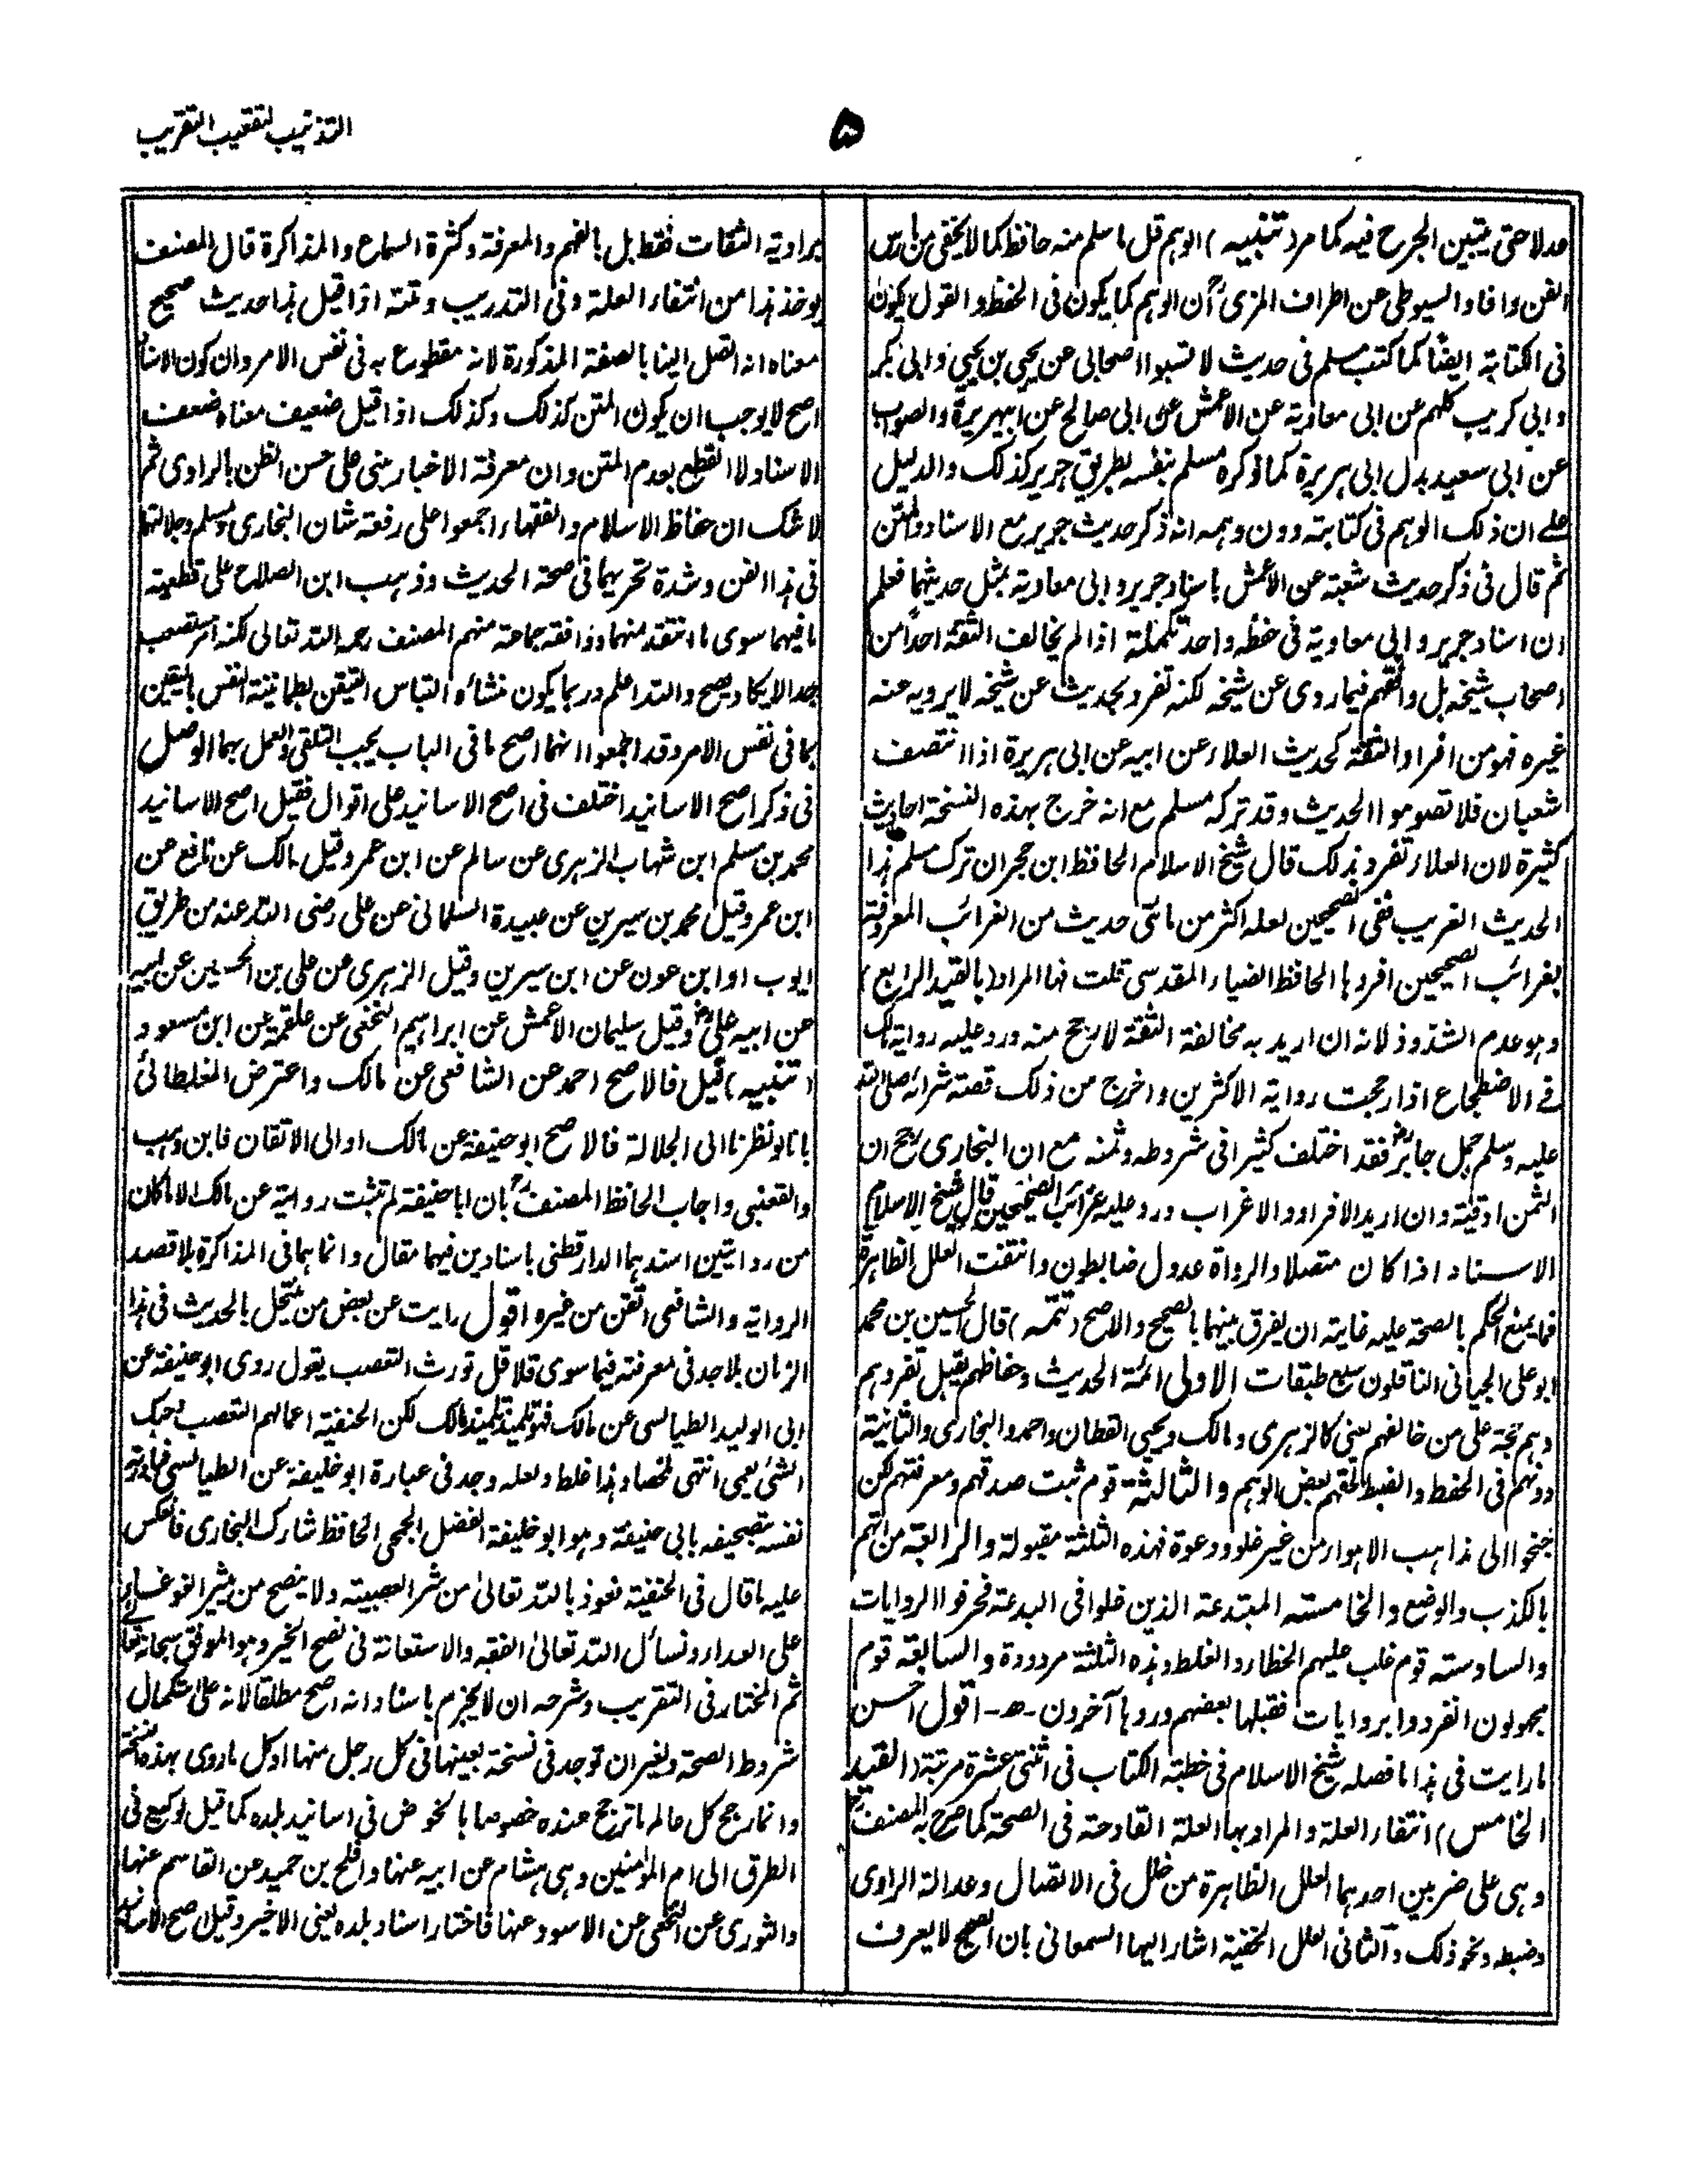 التذنيب لتقعيب التقريب
۵
عدلا حتى يتبين الجرح فيه كما مر (تنبيه) الوهم قل ما سلم منه حافظ كما لا يخفى من مارس
الفن وافاد السيوطى عن اطراف المزى رح ان الوهم كما يكون فى الحفظ والقول يكون
فى الكتابة ايضا كما كتب مسلم فى حديث لا تسبوا اصحابى عن يحيى بن يحيى وابى بكر
وابى كريب كلهم عن ابى معاوية عن الاعمش عن ابى صالح عن ابيهريرة والصواب
عن ابى سعيد بدل ابى هريرة كما ذكره مسلم بنفسه بطريق جرير كذلك والدليل
على ان ذلك الوهم فى كتابته دون وهمه انه ذكر حديث جرير مع الاسناد والمتن
ثم قال فى ذكر حديث شعبة عن الاعمش باسناد جرير وابى معاوية بمثل حديثهما فعلم
ان اسناد جرير وابى معاوية فى حفظه واحد تكملة اذا لم يخالف الثقة احدا من
اصحاب شيخه بل وافقهم فيما روى عن شيخه لكنه تفرد بحديث عن شيخه لا يرويه عنه
غيره فهو من افراد الثقة كحديث العلاء عن ابيه عن ابى هريرة اذا انتصف
شعبان فلا تصوموا الحديث وقد تركه مسلم مع انه خرج بهذه النسخة احاديث
كثيرة لان العلاء تفرد بذلك قال شيخ الاسلام الحافظ ابن حجر ان ترك مسلم هذا
الحديث الغريب ففى الصحيحين لعله اكثر من مائتى حديث من الغرائب المعروفة
بغرائب الصحيحين افردها الحافظ الضياء المقدسى قلت فما المراد (بالقيد الرابع)
وهو عدم الشذوذ لانه ان اريد به مخالفة الثقة لارجح منه ورد عليه رواية مالك
فى الاضطجاع اذا رجحت رواية الاكثرين واخرج من ذلك قصة شرائه صلى الله
عليه وسلم جمل جابر رض فقد اختلف كثيرا فى شروطه وثمنه مع ان البخارى رجح ان
الثمن اوقية وان اريد الافراد والاغراب ورد عليه غرائب الصحيحين قال شيخ الاسلام
الاسناد اذا كان متصلا والرواة عدول ضابطون وانتفت العلل الظاهرة
فما يمنع الحكم بالصحة عليه غايته ان يفرق بينهما بالصحيح والاصح (تتمه) قال الحسين بن محمد
ابو على الجيانى الناقلون سبع طبقات الاولى ائمة الحديث وحفاظهم يقبل تفردهم
وهم حجة على من خالفهم يعنى كالزهرى ومالك ويحيى القطان واحمد والبخارى والثانية
دونهم فى الحفظ والضبط لحقهم بعض الوهم والثالثة قوم ثبت صدقهم ومعرفتهم لكن
جنحوا الى مذاهب الاهواء من غير غلو ودعوة فهذه الثلثة مقبولة والرابعة من اتهم
بالكذب والوضع والخامسة المبتدعة الذين غلوا فى البدعة فحرفوا الروايات
والسادسة قوم غلب عليهم الخطاء والغلط وهذه الثلثة مردودة والسابعة قوم
مجهولون انفردوا بروايات فقبلها بعضهم وردها آخرون -ه- اقول احسن
ما رايت فى هذا ما فصله شيخ الاسلام فى خطبة الكتاب فى اثنتى عشرة مرتبة (القيد
الخامس) انتفاء العلة والمراد بها العلة القادحة فى الصحة كما صرح به المصنف رح
وهى على ضربين احدهما العلل الظاهرة من خلل فى الاتصال وعدالة الراوى
وضبطه ونحو ذلك والثانى العلل الخفية اشار اليها السمعانى بان الصحيح لا يعرف
برواية الثقات فقط بل بالفهم والمعرفة وكثرة السماع والمذاكرة قال المصنف
يوخذ هذا من انتفاء العلة وفى التدريب وتمته اذا قيل هذا حديث صحيح
معناه انه اتصل الينا بالصفة المذكورة لانه مقطوع به فى نفس الامر وان كون الاسناد
اصح لا يوجب ان يكون المتن كذلك وكذلك اذا قيل ضعيف معناه ضعف
الاسناد لا القطع بعدم المتن وان معرفة الاخبار بنى على حسن الظن بالراوى ثم
لا شك ان حفاظ الاسلام والفقهاء اجمعوا على رفعة شان البخارى ومسلم وجلالتهما
فى هذا الفن وشدة تحريهما فى صحة الحديث وذهب ابن الصلاح على قطعية
ما فيهما سوى ما انتقد منهما ووافقه جماعة منهم المصنف رحمه الله تعالى لكنه امر مستصعب
جدا لا يكاد يصح والله اعلم وربما يكون منشأه التباس التيقن بطمانينة النفس باليقين
بما فى نفس الامر وقد اجمعوا انهما اصح ما فى الباب يجب التلقى والعمل بهما الوصل
فى ذكر اصح الاسانيد اختلف فى اصح الاسانيد على اقوال فقيل اصح الاسانيد
محمد بن مسلم ابن شهاب الزهرى عن سالم عن ابن عمر وقيل مالك عن نافع عن
ابن عمر وقيل محمد بن سيرين عن عبيدة السلمانى عن على رضى الله عنه من طريق
ايوب او ابن عون عن ابن سيرين وقيل الزهرى عن على بن الحسين عن ابيه
عن ابيه على رض وقيل سليمان الاعمش عن ابراهيم النخعى عن علقمة عن ابن مسعود
(تنبيه) قيل فالاصح احمد عن الشافعى عن مالك واعترض المغلطائى
بانا لو نظرنا الى الجلالة فالاصح ابو حنيفة عن مالك او الى الاتقان فابن وهب
والقعنبى واجاب الحافظ المصنف رح بان ابا حنيفة لم تثبت روايته عن مالك الا ما كان
من روايتين اسندهما الدارقطنى باسنادين فيهما مقال وانما هما فى المذاكرة بلا قصد
الرواية والشافعى اتقن من غيره اقول رايت عن بعض من ينتحل بالحديث فى هذا
الزمان بلا جد فى معرفته فيما سوى قلاقل تورث التعصب يقول روى ابو حنيفة عن
ابى الوليد الطيالسى عن مالك فهو تلميذ تلميذ مالك لكن الحنفية اعمالهم التعصب وحبك
الشئ يعمى انتهى ملخصا وهذا غلط ولعله وجد فى عبارة ابو خليفة عن الطيالسى
نفسه بتصحيفه بابى حنيفة وهو ابو خليفة الفضل الجمحى الحافظ شارك البخارى فانعكس
عليه ما قال فى الحنفية نعوذ بالله تعالى من شر العصبية ولا ينصح من يثير الغوغاء
على العداء ونسأل الله تعالى الفقه والاستعانة فى نصح الخير وهو الموفق سبحانه تعالى
ثم المختار فى التقريب وشرحه ان لا يجزم باسناد انه اصح مطلقا لانه على استكمال
شروط الصحة ولغير ان توجد فى نسخة بعينها فى كل رجل منها او كل ما روى بهذه النسخة
وانما رجح كل عالم ما ترجح عنده خصوصا بالخوض فى اسانيد بلده كما قيل لوكيع فى
الطرق الى ام المؤمنين وهى هشام عن ابيه عنها وافلح بن حميد عن القاسم عنها
والثورى عن النخعى عن الاسود عنها فاختار اسناد بلده يعنى الاخير وقيل اصح الاسانيد